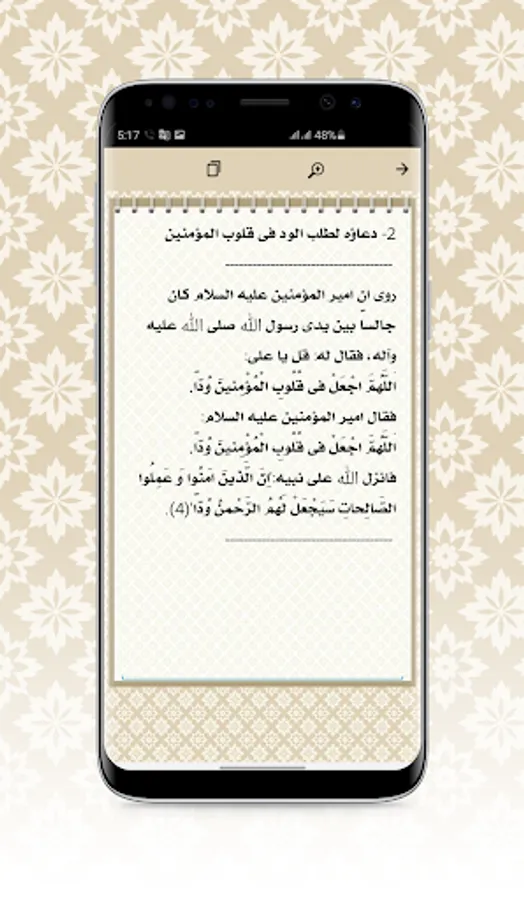 5:17
48%
2- دعاؤه لطلب الود في قلوب المؤمنين
روي انّ امير المؤمنين عليه السلام كان
جالساً بين يدي رسول الله صلى الله عليه
وآله، فقال له: قل يا علي:
اَللّهُمَّ اجْعَلْ في قُلُوبِ الْمُؤْمِنينَ وُدّاً.
فقال امير المؤمنين عليه السلام:
اَللّهُمَّ اجْعَلْ في قُلُوبِ الْمُؤْمِنينَ وُدّاً.
فانزل الله على نبيه: اِنَّ الَّذينَ امَنُوا وَ عَمِلُوا
الصّالِحاتِ سَيَجْعَلُ لَهُمُ الرَّحْمنُ وُدّاً'(4).